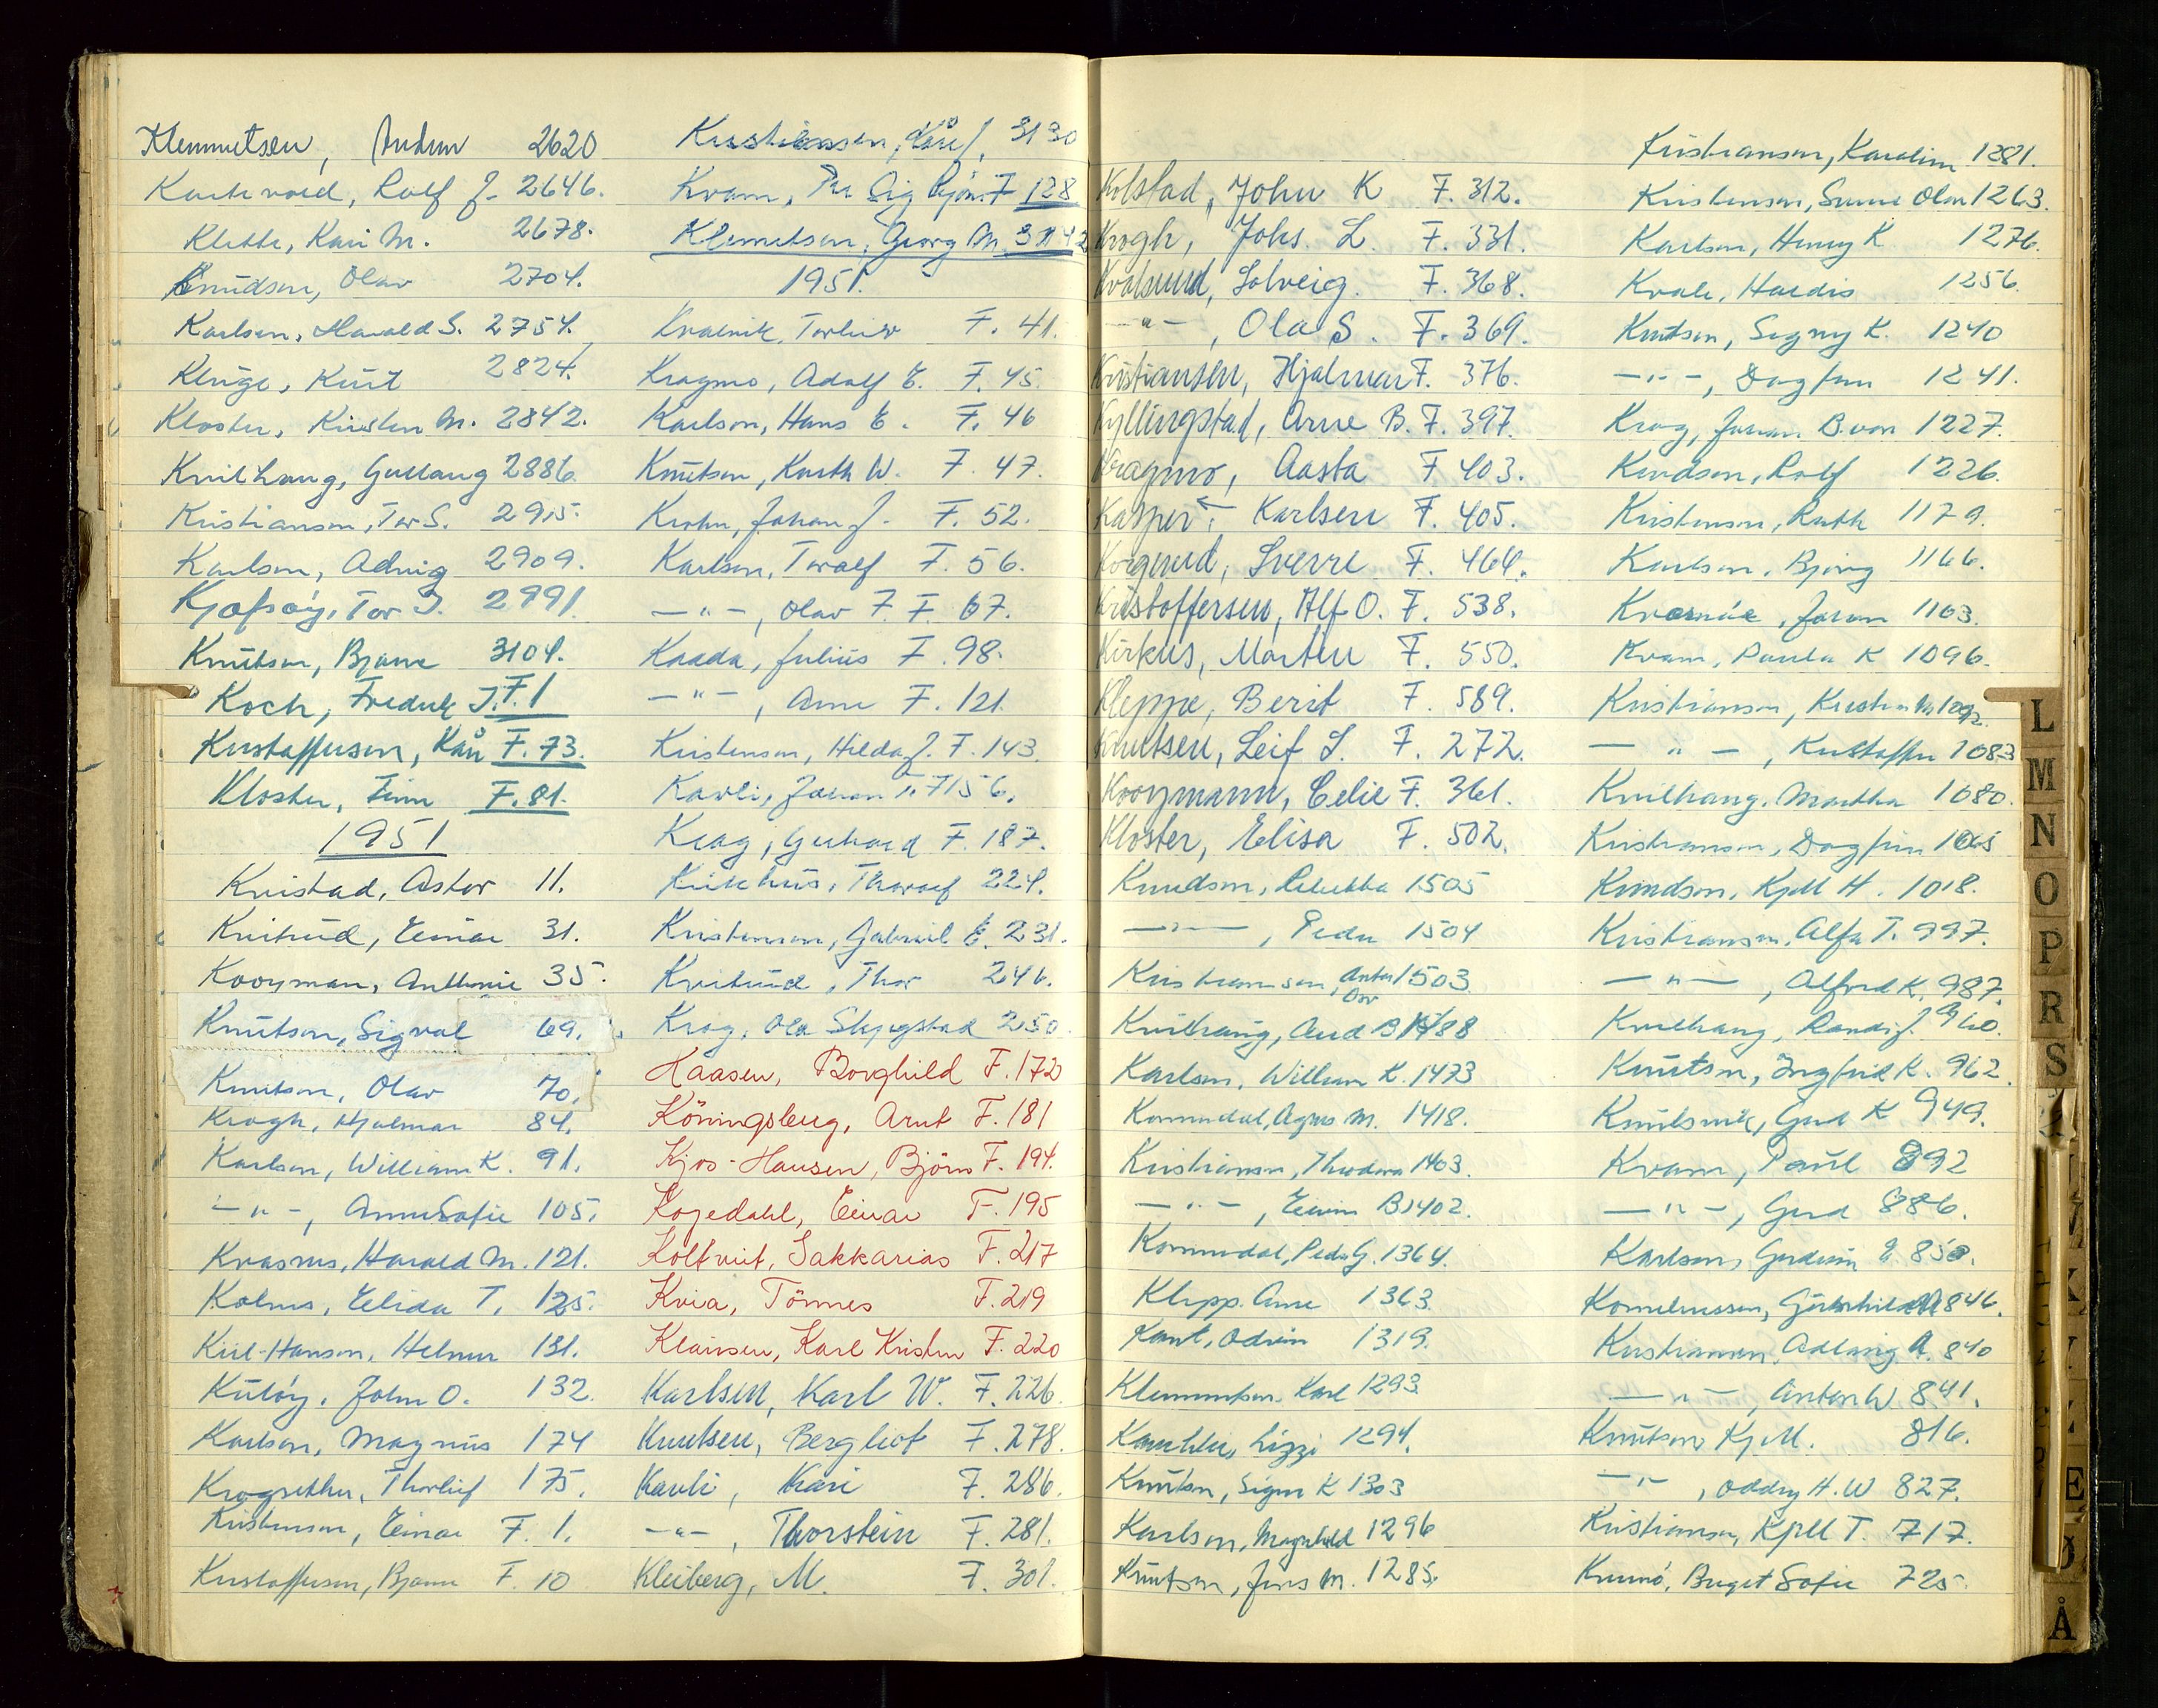 Klemmetsen, Audun 2620
Karlsvold, Rolf J. 2646.
Klette, Kari M. 2678.
Knudsen, Olav 2704.
Karlsen, Harald S. 2754.
Kluge, Kurt 2824.
Kloster, Kirsten M. 2842.
Kvilhaug, Gullaug 2886.
Kristiansen, Tor S. 2915.
Karlsen, Advig 2909.
Tor J. 2991.
Knutsen, Bjarne 3104.
Koch, Fredrik J. F. 1
Kristoffersen, Kåre F. 73.
Kloster, Finn F. 81.
1951
Kvistad, Astor 11.
Kvitrud, Einar 31.
Kooyman, Anthonie 35.
Knutsen, Sigval 69.
Knutsen, Olav 70.
Krogh, Hjalmar 84.
Karlsen, William K. 91.
— " —, Anna Sofie 105.
Harald M. 121.
Kolnes, Elida T. 125.
Kiil-Hansen, Helmer 131.
John O. 132.
Karlsen, Magnus 174
Krogsether, Thorleif 175.
Kristensen, Einar F. 1.
Kristoffersen, Bjarne F. 10
Kristiansen, Kåre J. 3130
Kvam, Per Sig Bjørn F 128
Klemetsen, Georg M. 3142
1951.
Kvalevik, Torleiv F. 41.
Kragmo, Adolf E. F. 45.
Karlsen, Hans E. F. 46
Knutsen, Karth W. F. 47.
Krohn, Johan J. F. 52.
Karlsen, Toralf F. 56.
— " —, Olav F. F. 67.
Kaada, Julius F. 98.
— " —, Arne F. 121.
Kristensen, Hilda J. F. 143.
Kavli, Johan F 156.
Krag, Gerhard F. 187.
Kirkhus, Thoralf 224.
Kristensen, Gabriel E. 231.
Kvitrud, Thor 246.
Krog, Ola 250.
Haasen, Borghild F. 172
Köningsberg, Arnt F. 181
Kjos-Hansen, Björn F. 194.
Kogedahl, Einar F. 195
Koltveit, Sakkarias F. 217
Kvia, Tönnes F. 219
Klausen, Karl Kristen F. 220
Karlsen, Karl W. F. 226
Knutsen, Bergliot F. 278.
Kavli, Kari F. 286.
— " —, Thorstein F. 281.
Kleiberg, M. F. 301.
Kolstad, John K F. 312.
Krogh, Johs. L. F. 331.
Kvalsund, Solveig. F. 368.
— " —, Ola S. F. 369.
Kristiansen, Hjalmar F. 376.
Kyllingstad, Arne B. F. 397.
Kragmo, Aasta F 403.
Kasper, Karlsen F. 405.
Korgerud, Sverre F. 464.
Kristoffersen, Alf O. F. 538.
Kirkus, Morten F. 550.
Kleppe, Berit F. 589.
Knutsen, Leif S. F. 272.
Kooymann, Celie F. 361.
Kloster, Elisa F. 502.
Knudsen, 1505
— " —, Peder 1504
Kristiansen, Anton 1503
Kvilhaug, Aud B 1488
Karlsen, William K. 1473
Kommedal, Agnes M. 1418.
Kristiansen, Theodora 1403.
— " —, B 1402.
Kommedal, Peder G. 1364.
Klepp. Arne 1363.
Kant, Odvin 1319.
Klemmetsen Karl 1293
Lizzi 1294.
Knutsen, Signe K 1303
Karlsen, Magnhild 1296
Knutsen, Jens M. 1285.
Kristiansen, Karoline 1281.
Kristensen, Sunne Olea 1263.
Karlsen, Henry K 1276.
Kvale, Hardis 1256.
Knutsen, Signy K. 1240
— " —, Dagfinn 1241.
Krog, Johan B. von 1227.
Knudsen, Rolf 1226.
Kristensen, Ruth 1179.
Karlsen, Bjørg 1166.
Johan 1103.
Kvam, Paula K 1096.
Kristiansen, Kirsten M. 1092.
— " —, Kristoffer 1083
Kvilhaug, Martha 1080.
Kristiansen, Dagfinn 1065
Knudsen, Kjell H. 1018.
Kristiansen, Alfa T. 997.
— " —, Alfred K. 987.
Kvilhaug, Randi J. 960.
Knutsen, Ingfrid K. 962.
Knutsvik, Gerd K 949.
Kvam, Paul 892
— " —, Gerd 886.
Karlsen, 850.
Korneliussen, Gunhild 846.
Kristiansen, Advig A. 840
— " —, Anton W 841.
Knutsen, Kj. M. 816.
— " —, Oddny H. W 827.
Kristiansen, Kjell T. 717.
Birgit Sofie 725.
L
M
N
O
P
R
S
Å